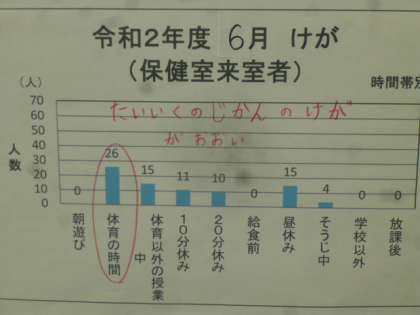 令和2年度 6月 けが
(保健室来室者)
(人)
時間帯別
たいいくのじかんのけが
がおおい
人数
70
60
50
40
30
20
10
0
0
26
15
11
10
0
15
4
0
0
朝遊び
体育の時間
体育以外の授業中
10分休み
20分休み
給食前
昼休み
そうじ中
学校以外
放課後